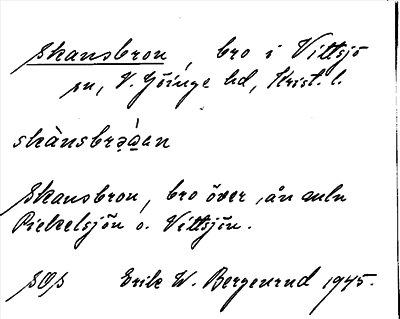 Skansbron, bro i Vittsjö
sn, V. Göinge hd, Krist. l.
skànsbrǝ̀ən
Skansbron, bro över ån mln
Pickelsjön o. Vittsjön.
SOS Erik W. Bergenrud 1945.